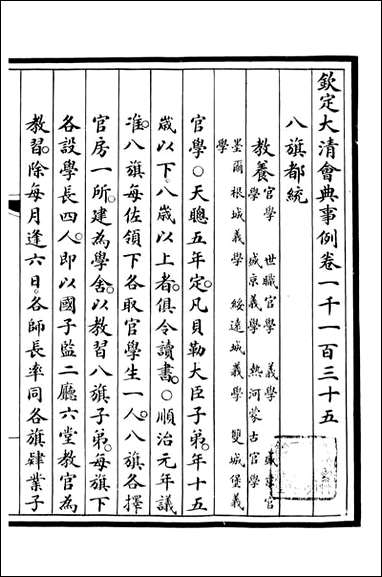 欽定大清會典事例卷一千一百三十五
八旗都統
教養官學 世職官學 義學 盛京官
學 盛京義學 熱河蒙古官學
墨爾根城義學 綏遠城義學 雙城堡義
學
官學○天聰五年定凡貝勒大臣子弟年十五
歲以下八歲以上者俱令讀書○順治元年議
准八旗每佐領下各取官學生一人八旗各擇
官房一所建為學舍以教習八旗子弟每旗下
各設學長四人即以國子監二廳六堂教官為
教習除每月逢六日各師長率同各旗肄業子